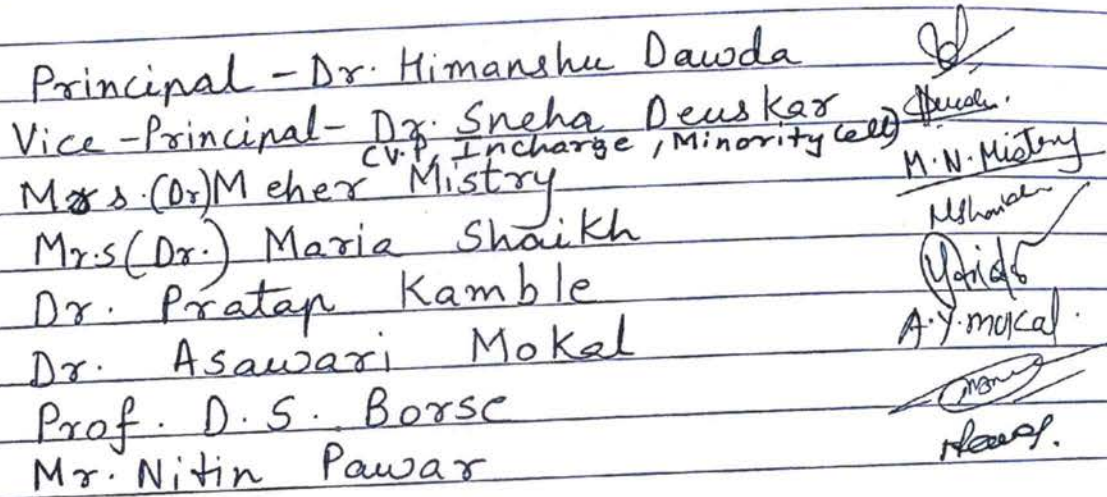 Principal - Dr. Himanshu Dawda
Vice-Principal- Dr. Sneha Deuskar
(V.P, Incharge, Minority cell)
Mrs. (Dr) Meher Mistry M.N. Mistry
Mrs (Dr.) Maria Shaikh
Dr. Pratap Kamble
Dr. Asawari Mokal A.Y. Mokal.
Prof. D. S. Borse
Mr. Nitin Pawar